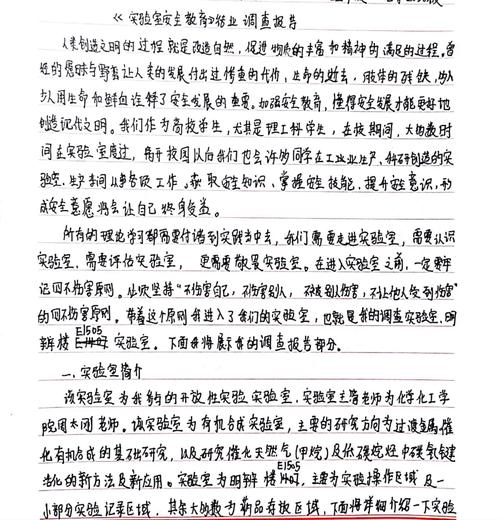 《实验室安全教育》结业调查报告
人类创造文明的过程就是改造自然,促进物质的丰富和精神的满足的过程。曾
经的愚昧与野蛮让人类的发展付出过惨重的代价,生命的逝去,肢体的残缺,
以用生命和鲜血诠释了安全发展的重要。加强安全教育,懂得安全发展才能更好地
创造现代文明。我们作为高校学生,尤其是理工科学生,在校期间,大多数时
间在实验室度过,离开校园以后我们也会许多同学在工业业生产、科研创造的实
验室、生产车间从事各项工作。获取安全知识、掌握安全技能、提升安全意识,形
成安全意愿将会让自己终身受益。
所有的理论学习都需要付诸到实践当中去,我们需要走进实验室,需要认识
实验室,需要评估实验室,更需要敬畏实验室。在进入实验室之前,一定要牢
记四不伤害原则。坚持“不伤害自己,不伤害别人,不被别人伤害,不让他人受到伤害”
的四不伤害原则。带着这个原则我进入了我们的实验室,也就是我的调查实验室,明
辨楼E1505实验室。下面我将展示我的调查报告部分。
一、实验室简介
该实验室为我校的开放性实验实验室,实验室主管老师为化学化工学
院周太刚老师。该实验室为有机合成实验室,主要的研究方向为过渡金属催
化有机合成的基础研究,以及研究催化天然气(甲烷)及低碳烷烃中碳氢键
活化的新方法及新应用。实验室为明辨楼E1505,主要为实验操作区域及一
小部分实验记录区域,其余大多数为药品存放区域,下面将详细介绍一下实验